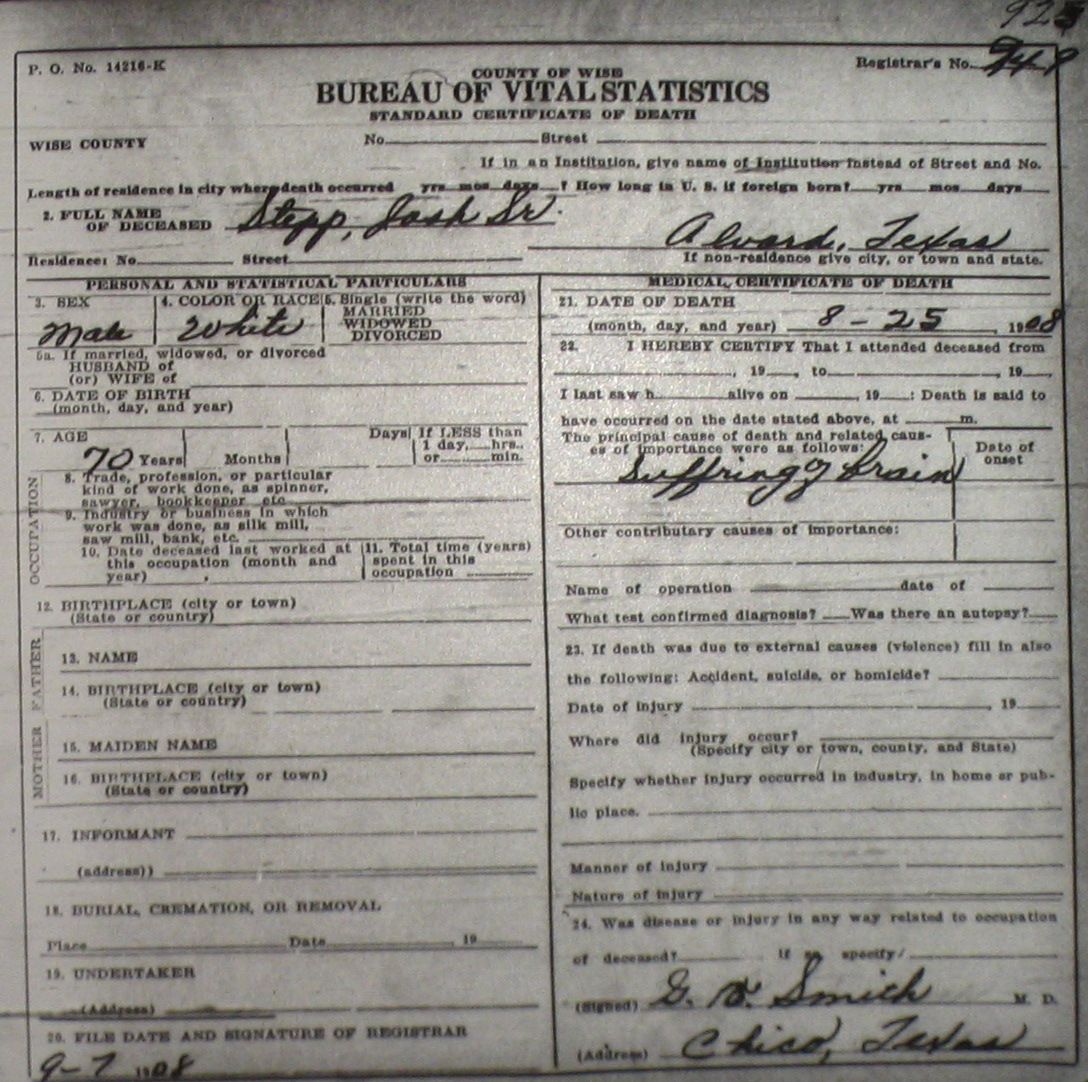 92
P. O. No. 14216-K
COUNTY OF WISE
Registrar's No.
BUREAU OF VITAL STATISTICS
STANDARD CERTIFICATE OF DEATH
WISE COUNTY No. Street
If in an Institution, give name of Institution instead of Street and No.
Length of residence in city where death occurred yrs mos days ? How long in U. S. if foreign born? yrs mos days
2. FULL NAME
OF DECEASED Stepp, Josh Sr.
Alvord, Texas
Residence: No. Street
If non-residence give city, or town and state.
PERSONAL AND STATISTICAL PARTICULARS
3. SEX 4. COLOR OR RACE 5. Single (write the word)
MARRIED
WIDOWED
DIVORCED
Male White
5a. If married, widowed, or divorced
HUSBAND of
(or) WIFE of
6. DATE OF BIRTH
(month, day, and year)
7. AGE Days If LESS than
1 day, hrs.
70 Years Months or min.
OCCUPATION
8. Trade, profession, or particular
kind of work done, as spinner,
sawyer, bookkeeper etc
9. Industry or business in which
work was done, as silk mill,
saw mill, bank, etc.
10. Date deceased last worked at
this occupation (month and
year)
11. Total time (years)
spent in this
occupation
12. BIRTHPLACE (city or town)
(State or country)
FATHER
13. NAME
14. BIRTHPLACE (city or town)
(State or country)
MOTHER
15. MAIDEN NAME
16. BIRTHPLACE (city or town)
(State or country)
17. INFORMANT
(address))
18. BURIAL, CREMATION, OR REMOVAL
Place Date 19
19. UNDERTAKER
(Address)
20. FILE DATE AND SIGNATURE OF REGISTRAR
9-7 1908
MEDICAL CERTIFICATE OF DEATH
21. DATE OF DEATH
(month, day, and year) 8-25, 1908
22. I HEREBY CERTIFY That I attended deceased from
, 19 , to , 19 .
I last saw h alive on , 19 : Death is said to
have occurred on the date stated above, at m.
The principal cause of death and related caus-
es of importance were as follows:
Date of
onset
Suffring of brain
Other contributary causes of importance:
Name of operation date of
What test confirmed diagnosis? Was there an autopsy?
23. If death was due to external causes (violence) fill in also
the following: Accident, suicide, or homicide?
Date of injury , 19
Where did injury occur?
(Specify city or town, county, and State)
Specify whether injury occurred in industry, in home or pub-
lic place.
Manner of injury
Nature of injury
24. Was disease or injury in any way related to occupation
of deceased? If so specify/
(Signed) G. Smith M. D.
(Address) Chico, Texas